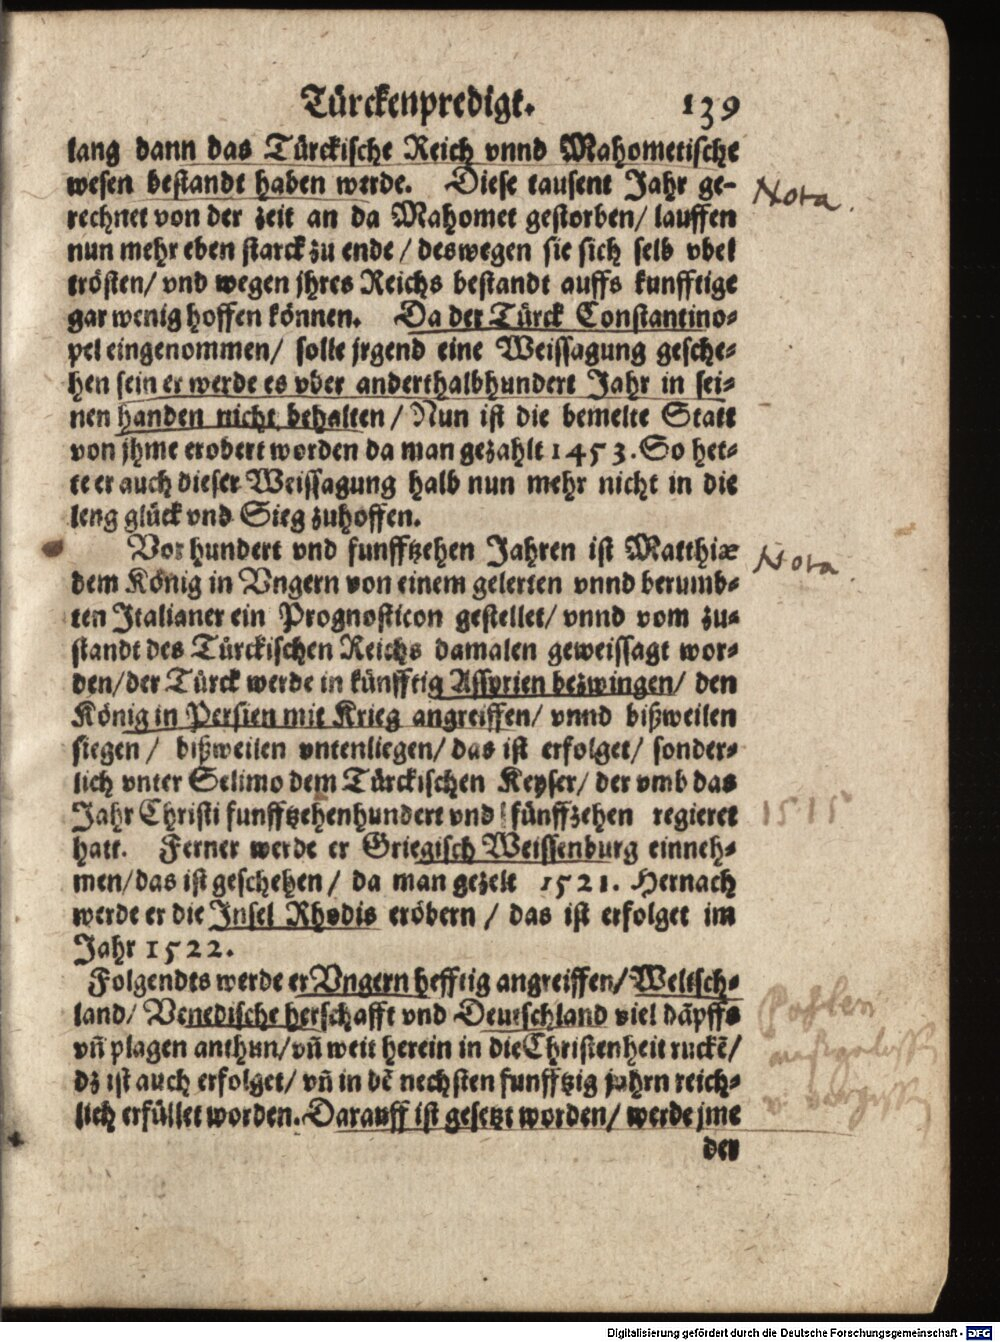 Türckenpredigt. 139
lang dann das Türckische Reich vnnd Mahometische
wesen bestandt haben werde. Diese tausent Jahr ge-
Nota.
rechnet von der zeit an da Mahomet gestorben/ lauffen
nun mehr eben starck zu ende / deswegen sie sich selb vbel
trösten/ vnd wegen jhres Reichs bestandt auffs kunfftige
gar wenig hoffen können. Da der Türck Constantino-
pel eingenommen/ solle jrgend eine Weissagung gesche-
hen sein er werde es vber anderthalbhundert Jahr in sei-
nen handen nicht behalten / Nun ist die bemelte Statt
von jhme erobert worden da man gezahlt 1453. So het-
te er auch dieser Weissagung halb nun mehr nicht in die
leng glück vnd Sieg zuhoffen.
Vor hundert vnd funfftzehen Jahren ist Matthiæ
Nota
dem König in Vngern von einem gelerten vnnd berumb-
ten Italianer ein Prognosticon gestellet/ vnnd vom zu-
standt des Türckischen Reichs damalen geweissagt wor-
den/der Türck werde in künfftig Assyrien bezwingen/ den
König in Persien mit Krieg angreiffen/ vnnd bißweilen
siegen / bißweilen vntenliegen/ das ist erfolget/ sonder-
lich vnter Selimo dem Türckischen Keyser/ der vmb das
Jahr Christi funfftzehenhundert vnd fünffzehen regieret
1515
hatt. Ferner werde er Griegisch Weissenburg einneh-
men/das ist geschehen / da man gezelt 1521. Hernach
werde er die Insel Rhodis eröbern / das ist erfolget im
Jahr 1522.
Folgendts werde er Vngern hefftig angreiffen/ Weltsch-
land/ Venedische herschafft vnd Deutschland viel dāpffs
vn̄ plagen anthun/ vn̄ weit herein in die Christenheit ruckē/
dz ist auch erfolget/ vn̄ in dē nechsten funfftzig jahrn reich-
lich erfüllet worden. Darauff ist gesetzt worden/ werde jme
der
Digitalisierung gefördert durch die Deutsche Forschungsgemeinschaft - DFG